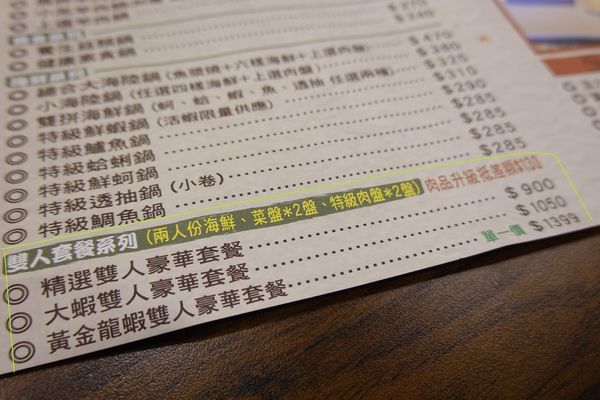 $270
$340
養生蔬菜鍋
健康素食鍋
綜合大海陸鍋(魚頭燒+六樣海鮮+上選肉盤) $470
小海陸鍋(任選四樣海鮮+上選肉盤) $380
雙拼海鮮鍋(蚵、蛤、蝦、魚、透抽 任選兩種) $320
特級鮮蝦鍋(活蝦限量供應) $310
特級鱸魚鍋 $290
特級蛤蜊鍋 $285
特級鮮蚵鍋 $285
特級透抽鍋(小卷) $285
特級鯛魚鍋 $285
雙人套餐系列(兩人份海鮮、菜盤*2盤、特級肉盤*2盤) 肉品升級抵差額$130
精選雙人豪華套餐 $900
大蝦雙人豪華套餐 $1050
黃金龍蝦雙人豪華套餐 單一價 $1399